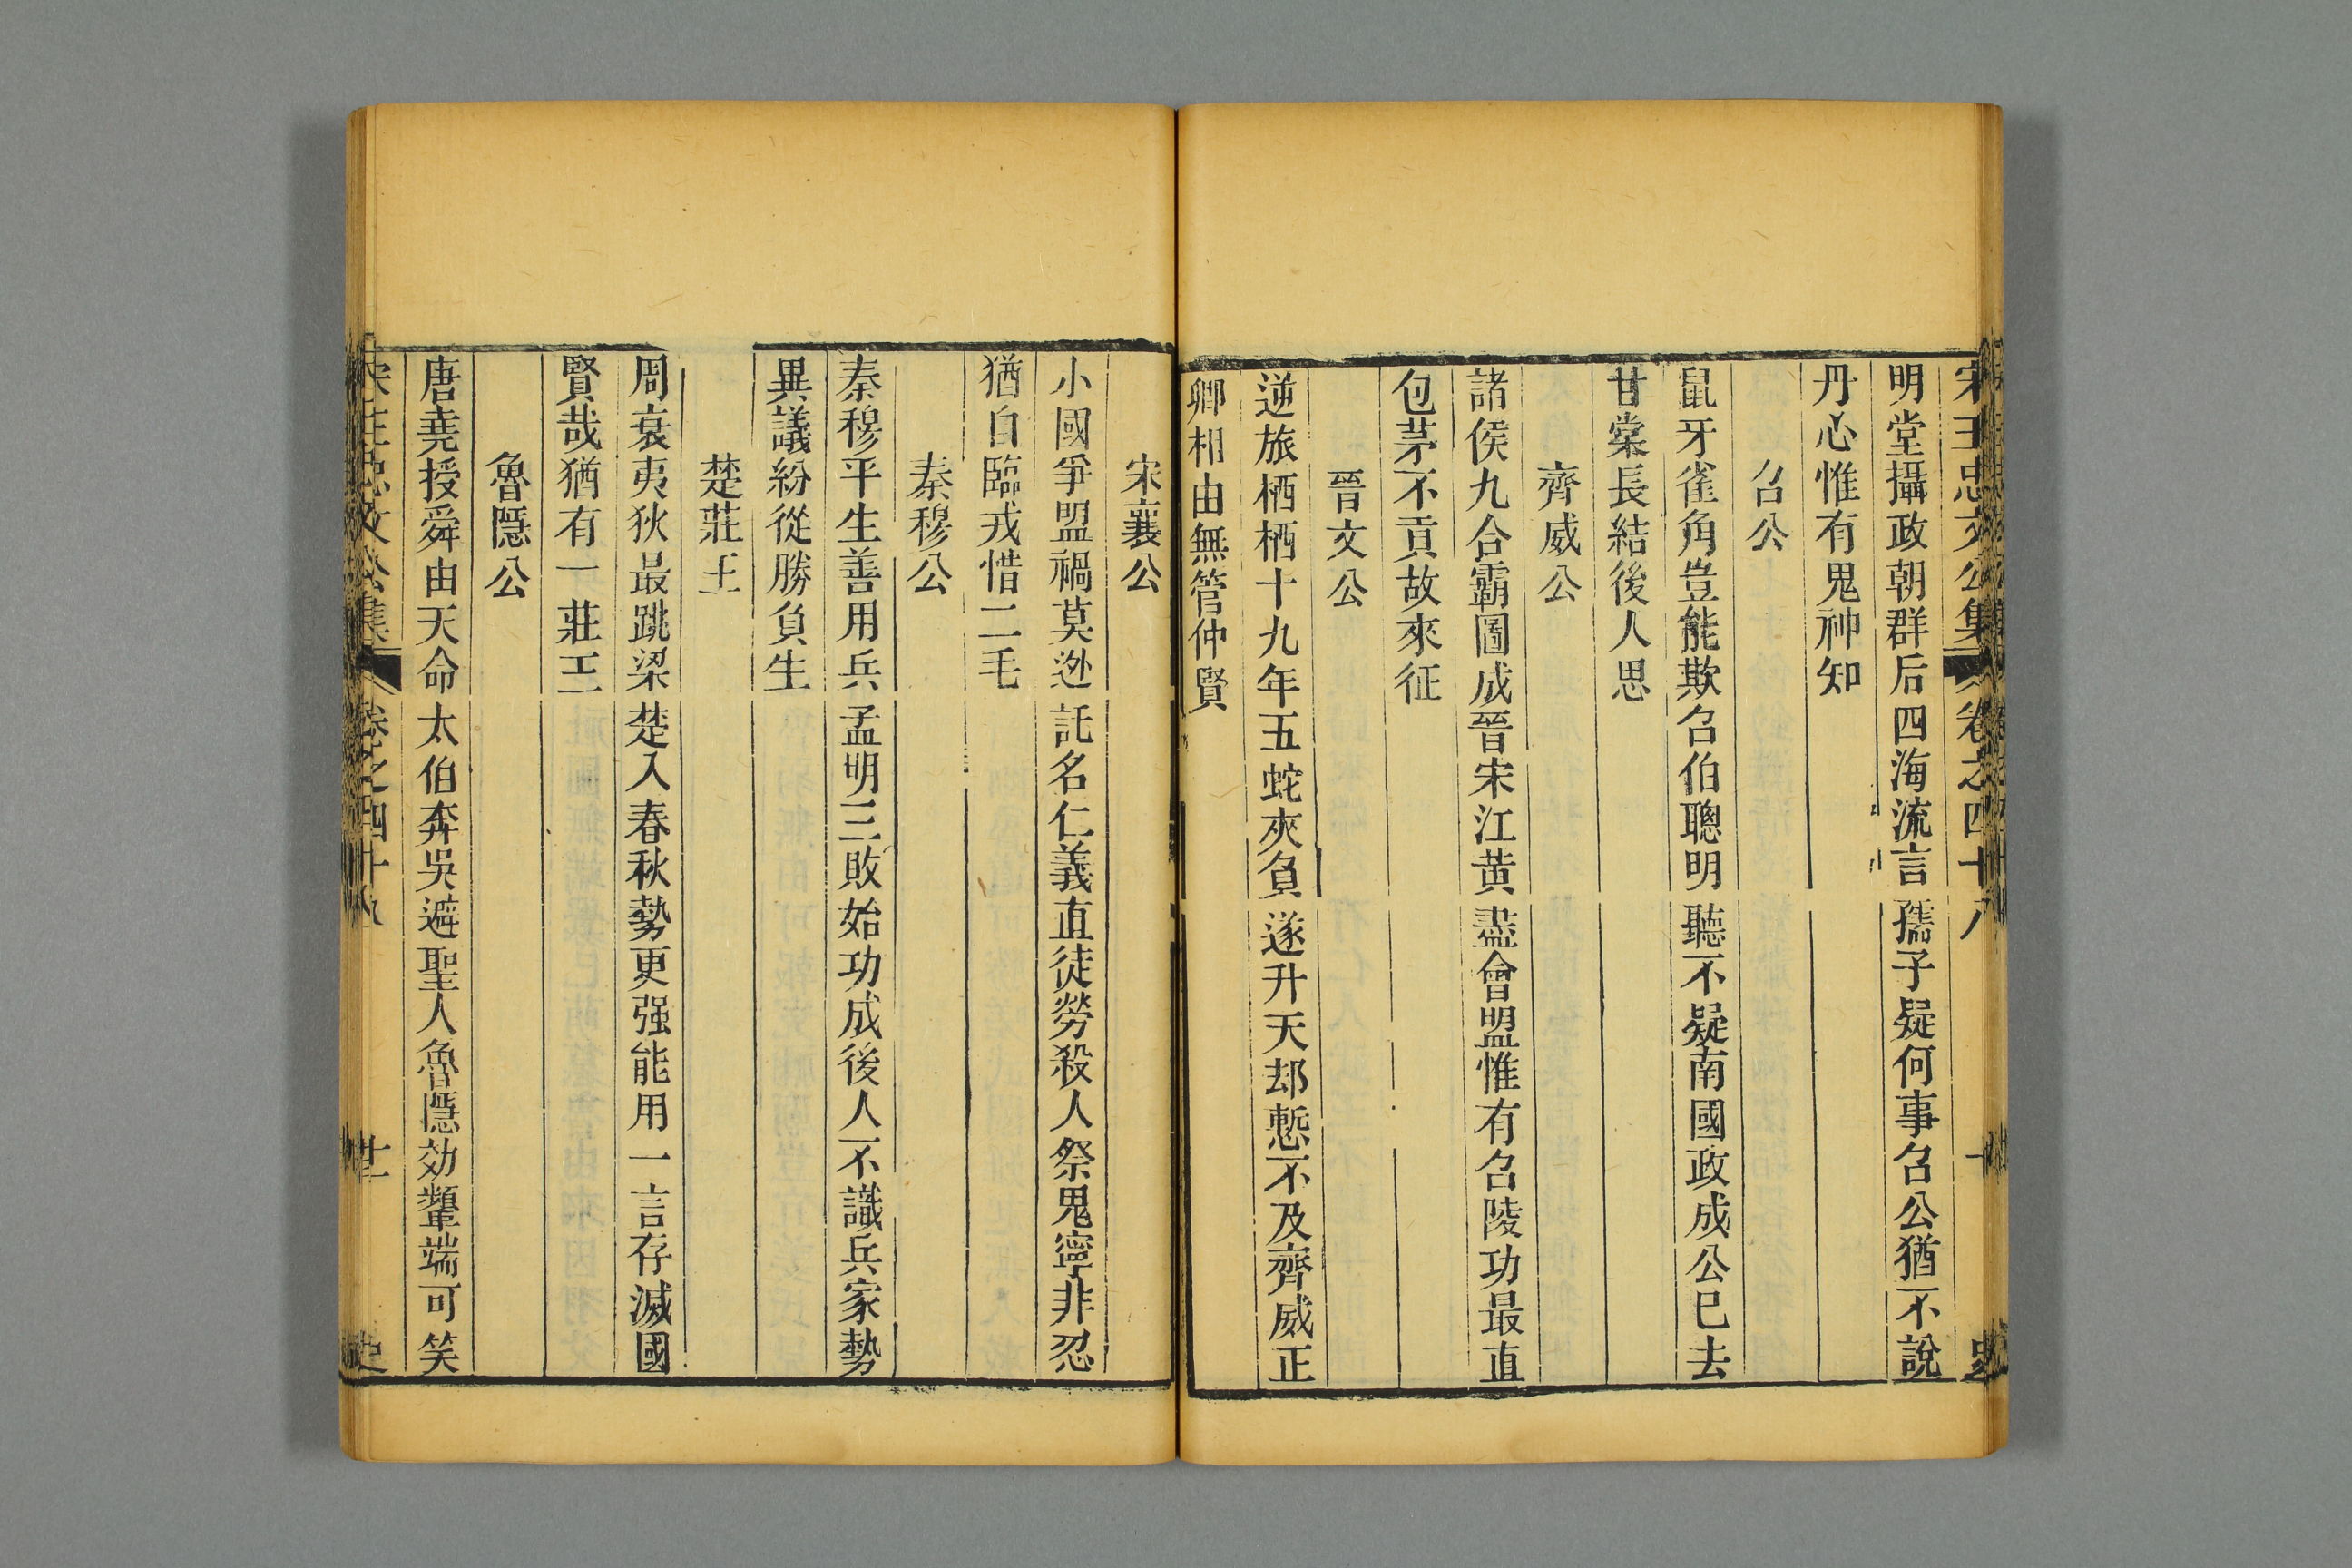 宋王忠文公集 卷之四十八
明堂攝政朝群后四海流言孺子疑何事召公猶不說
丹心惟有鬼神知
召公
鼠牙雀角豈能欺召伯聰明聽不疑南國政成公已去
甘棠長結後人思
齊威公
諸侯九合霸圖成晉宋江黄盡會盟惟有召陵功最直
包茅不貢故來征
晉文公
逆旅栖栖十九年五蛇夾負遂升天却慙不及齊威正
卿相由無管仲賢
宋襄公
小國爭盟禍莫逃託名仁義直徒勞殺人祭鬼寧非忍
猶自臨戎惜二毛
秦穆公
秦穆平生善用兵孟明三敗始功成後人不識兵家勢
異議紛從勝負生
楚莊王
周衰夷狄最跳梁楚入春秋勢更强能用一言存滅國
賢哉猶有一莊王
魯隱公
唐堯授舜由天命太伯奔吳避聖人魯隱効顰端可笑
宋王忠文公集 卷之四十八 廿 史